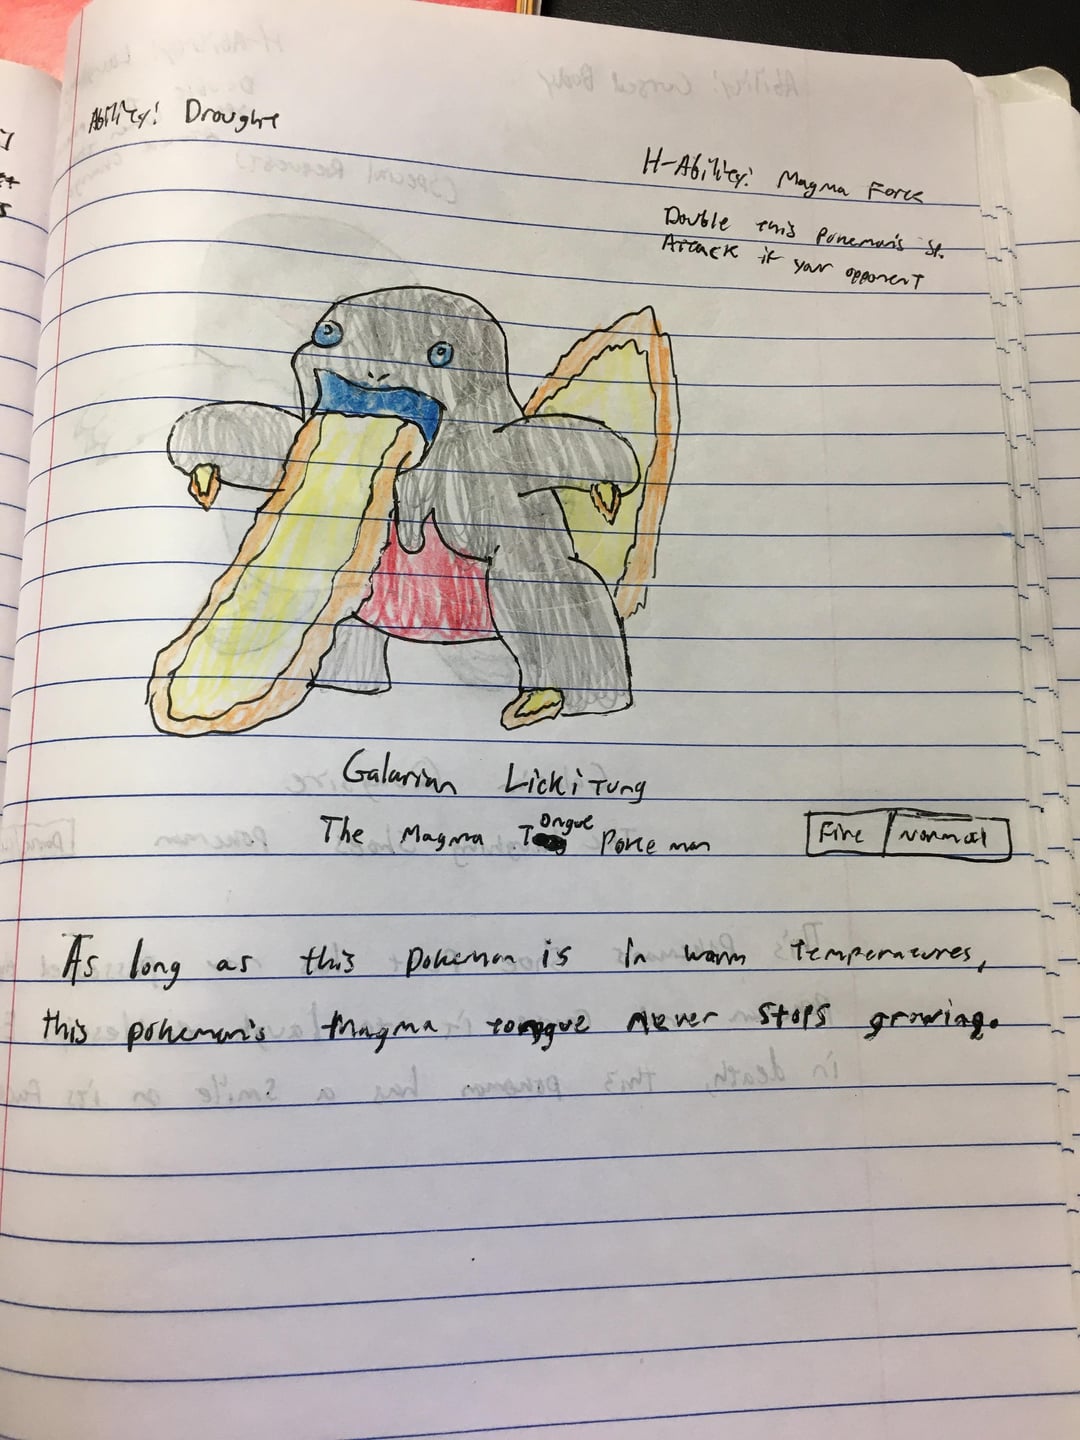 Ability: Drought
H-Ability: Magma Force
Double this pokemon's sp.
Attack if your opponent
Galarian Lickitung
The Magma Tongue Pokemon
Fire Normal
As long as this pokemon is in warm temperatures,
this pokemon's magma tongue never stops growing.